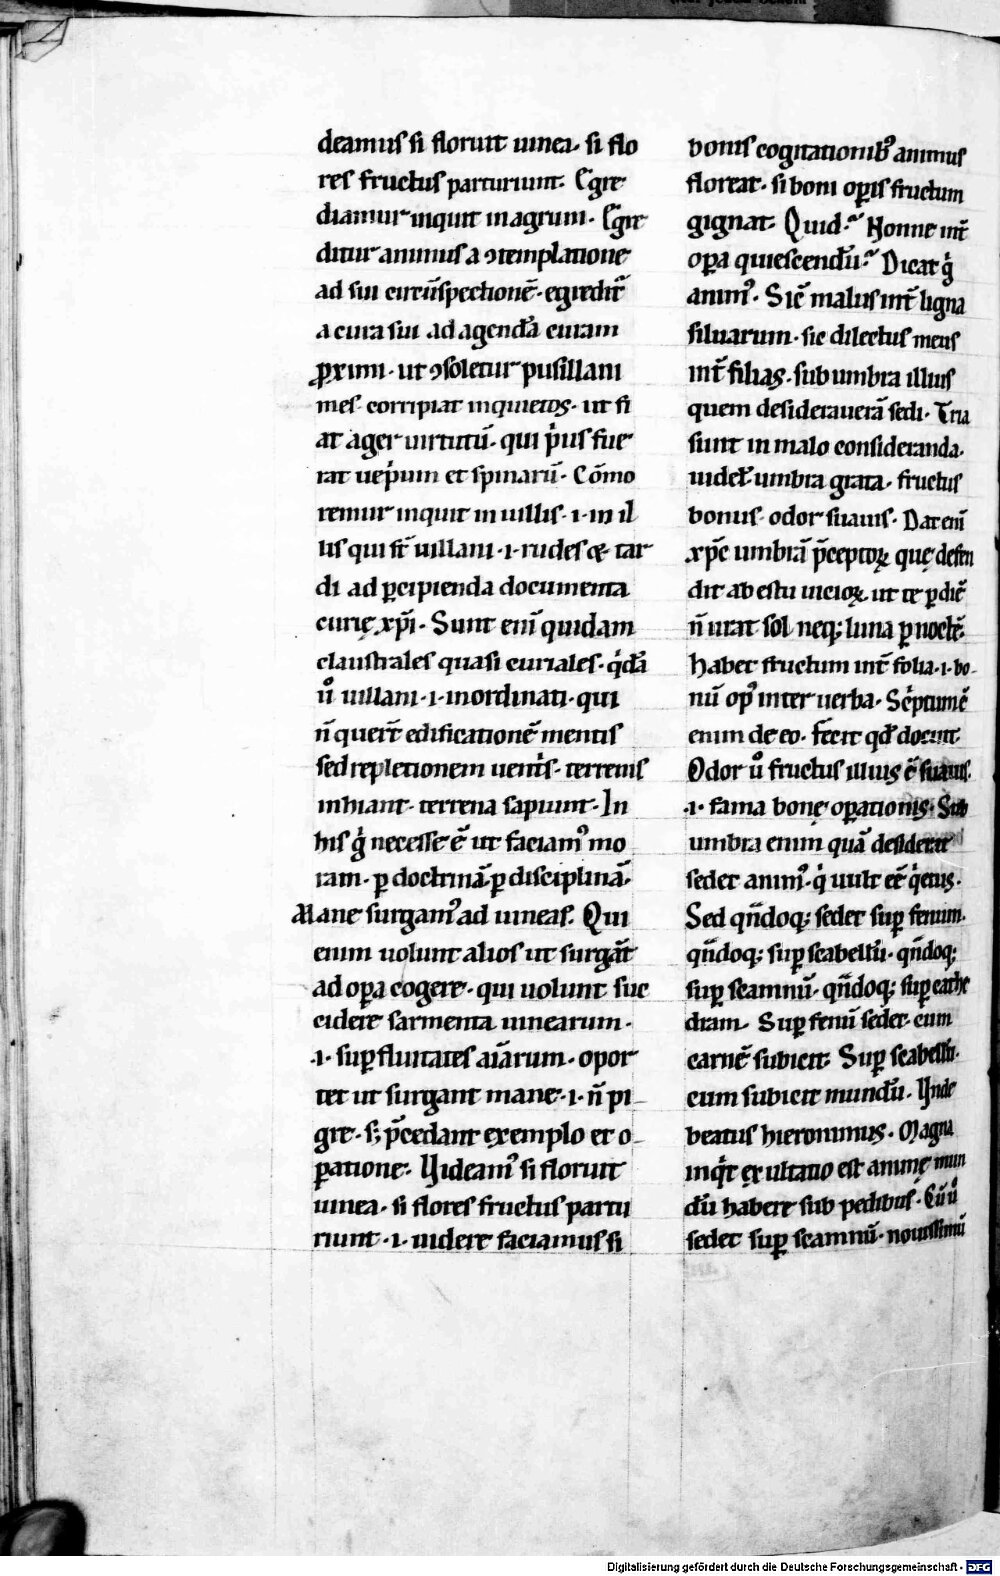 deamus si floruit uinea. si flo
res fructus parturiunt. Egre
diamur inquit in agrum. Egre
ditur animus a ↄtemplatione
ad sui circūspectionē. egredit᷑
a cura sui ad agendā curam
ꝓximi. ut ↄsoletur pusillani
mes. corripiat inquietos. ut fi
at ager uirtutū. qui pͥus fue
rat ueprium et spinarū. Cōmo
remur inquit in uillis .i. in il
lis qui st̄ uillani .i. rudes & tar
di ad ꝑcipienda documenta
curię xp̄i. Sunt eni̅ quidam
claustrales quasi curiales. qͥdā
uͦ uillani .i. inordinati. qui
n̄ querūt edificationē mentis
sed repletionem uentris. terrenis
inhiant. terrena sapiunt. In
his gͥ necesse ē ut faciamꝰ mo
ram. ꝑ doctrinā. ꝑ disciplinā.
Mane surgamꝰ ad uineas. Qui
enim uolunt alios ut surgāt
ad oꝑa cogere. qui uolunt suc
cidere sarmenta uinearum.
.i. suꝑfluitates aīarum. opor
tet ut surgant mane .i. n̄ pi
gre. s; p̄cedant exemplo et o
ꝑatione. Uideamꝰ si floruit
uinea. si flores fructus partu
riunt .i. uidere faciamus si
bonis cogitationibꝰ animus
floreat. si boni oꝑis fructum
gignat. Quid? Nonne int̄
oꝑa quiescendū? Dicat gͥ
animꝰ. Sic̄ malus int̄ ligna
siluarum. sic dilectus meus
int̄ filias. sub umbra illius
quem desideraueram sedi. Tria
sunt in malo consideranda.
uidel; umbra grata. fructus
bonus. odor suauis. Dat eni̅
xp̄c umbrā p̄ceptoꝝ quę defen
dit ab estu uicioꝝ. ut te ꝑ diē
n̄ urat sol neq; luna ꝑ noctē.
Habet fructum int̄ folia .i. bo
nū opꝰ inter uerba. Scͥptum ē
enim de eo. Fecit qd̄ docuit.
Odor uͦ fructus illius ē suauis.
.i. fama bonę oꝑationis. Sub
umbra enim quā desiderat
sedet animꝰ. qͥ uult eē qͥetus.
Sed qn̄doq; sedet suꝑ fenum.
qn̄doq; suꝑ scabellū. qn̄doq;
suꝑ scamnū. qn̄doq; suꝑ cathe
dram. Suꝑ fenū sedet. cum
carnē subicit. Suꝑ scabellū.
cum subicit mundū. Unde
beatus hieronimus. Magna
inqͥt exultatio est animę mun
dū habere sub pedibus. Cū uͦ
sedet suꝑ scamnū. nouissimū
Digitalisierung gefördert durch die Deutsche Forschungsgemeinschaft - DFG